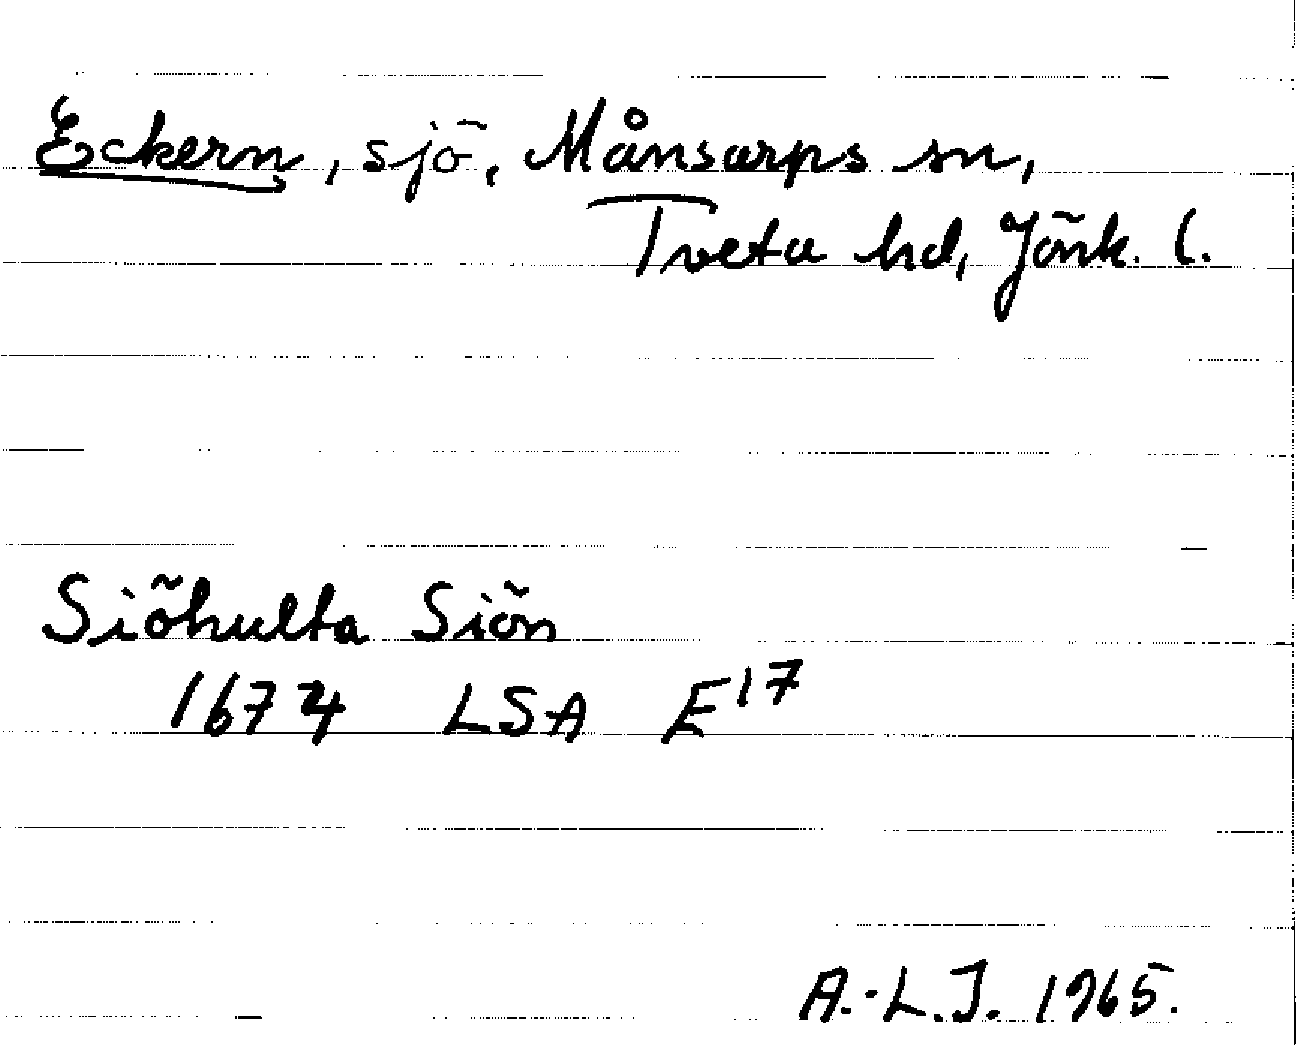 Eckern, sjö, Månsarps sn,
Tveta hd, Jönk. l.
Siöhulta Siön
1674 LSA E17
A.-L.J. 1965.